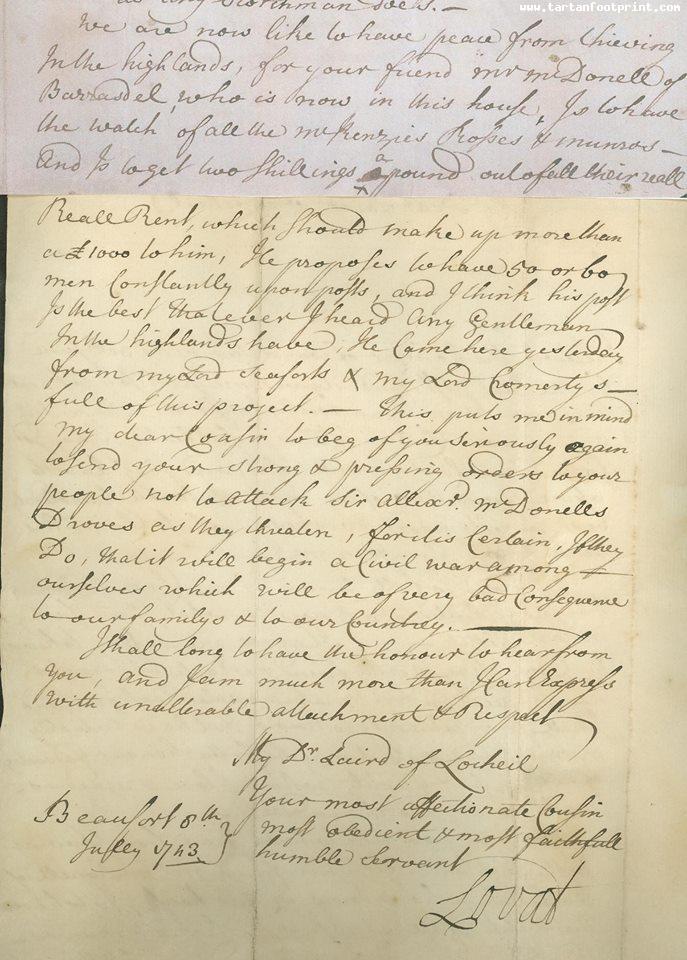 www.tartanfootprint.com
as any Scotchman
We are now like to have peace from thieving
In the highlands, for your friend mr mcDonell of
Barrasdel, who is now in this house, Is to have
the watch of all the mcKenzies Rosses & munros —
And Is to get two shillings a pound out of all their reall
Reall Rent, which should make up more than
a £1000 to him, He proposes to have 50 or 60
men Constantly upon posts, and I think his post
Is the best that ever I heard any gentleman
In the highlands have, He Came here yesterday
from my Lord Seaforts & my Lord Cromertys —
full of this project. — This puts me in mind
my dear Cousin to beg of you seriously again
to send your strong & pressing orders to your
people not to attack Sir Allexr. mcDonells
Droves as they threaten, for it is Certain, If they
Do, that it will begin a Civil war among —
ourselves which will be of very bad Consequence
to our familys & to our Countrey. —
I shall long to have the honour to hear from
you, and I am much more than I Can Express
with unalterable attachment & Respect
My Dr. Laird of Locheil
Your most affectionate Cousin
most obedient & most faithfull
humble servant
Beaufort 8th
July 1743
Lovat